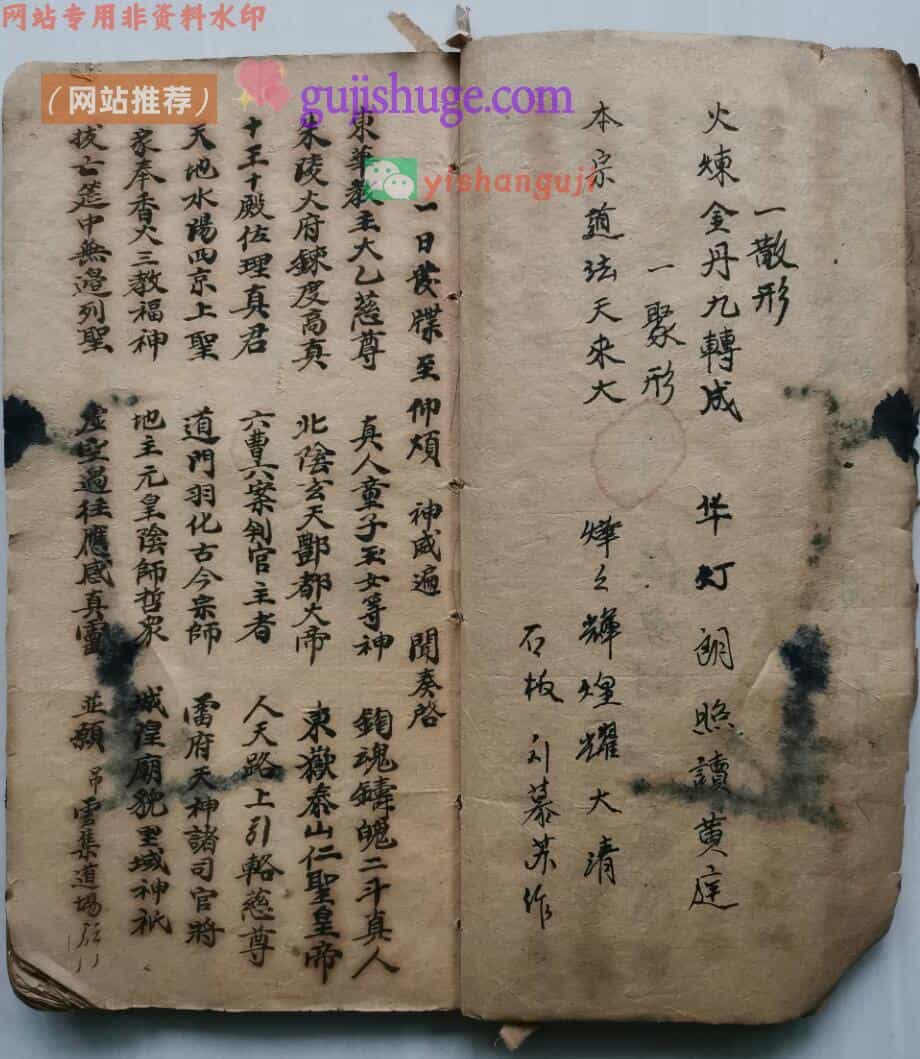 网站专用非资料水印
（网站推荐）
gujishuge.com
yishanguji
一散形
火煉金丹九轉成 华灯朗照讀黄庭
一聚形
本宗道法天來大 燁之輝煌耀大清
石板刘慕苏作
一日發牒至仰煩 神威遍 聞奏啓
東華教主大乙慈尊 真人童子玉女等神 鈎魂鑄魄二斗真人
朱陵火府鍊度高真 北陰玄天酆都大帝 東嶽泰山仁聖皇帝
十王十殿佐理真君 六曹六案判官主者 人天路上引輅慈尊
天地水陽四京上聖 道門羽化古今宗師 雷府天神諸司官將
家奉香火三教福神 地主元皇陰師哲衆 城隍廟貌里域神祇
拔亡筵中無邊列聖 虚空過往應感真靈 並願 吊雲集道場